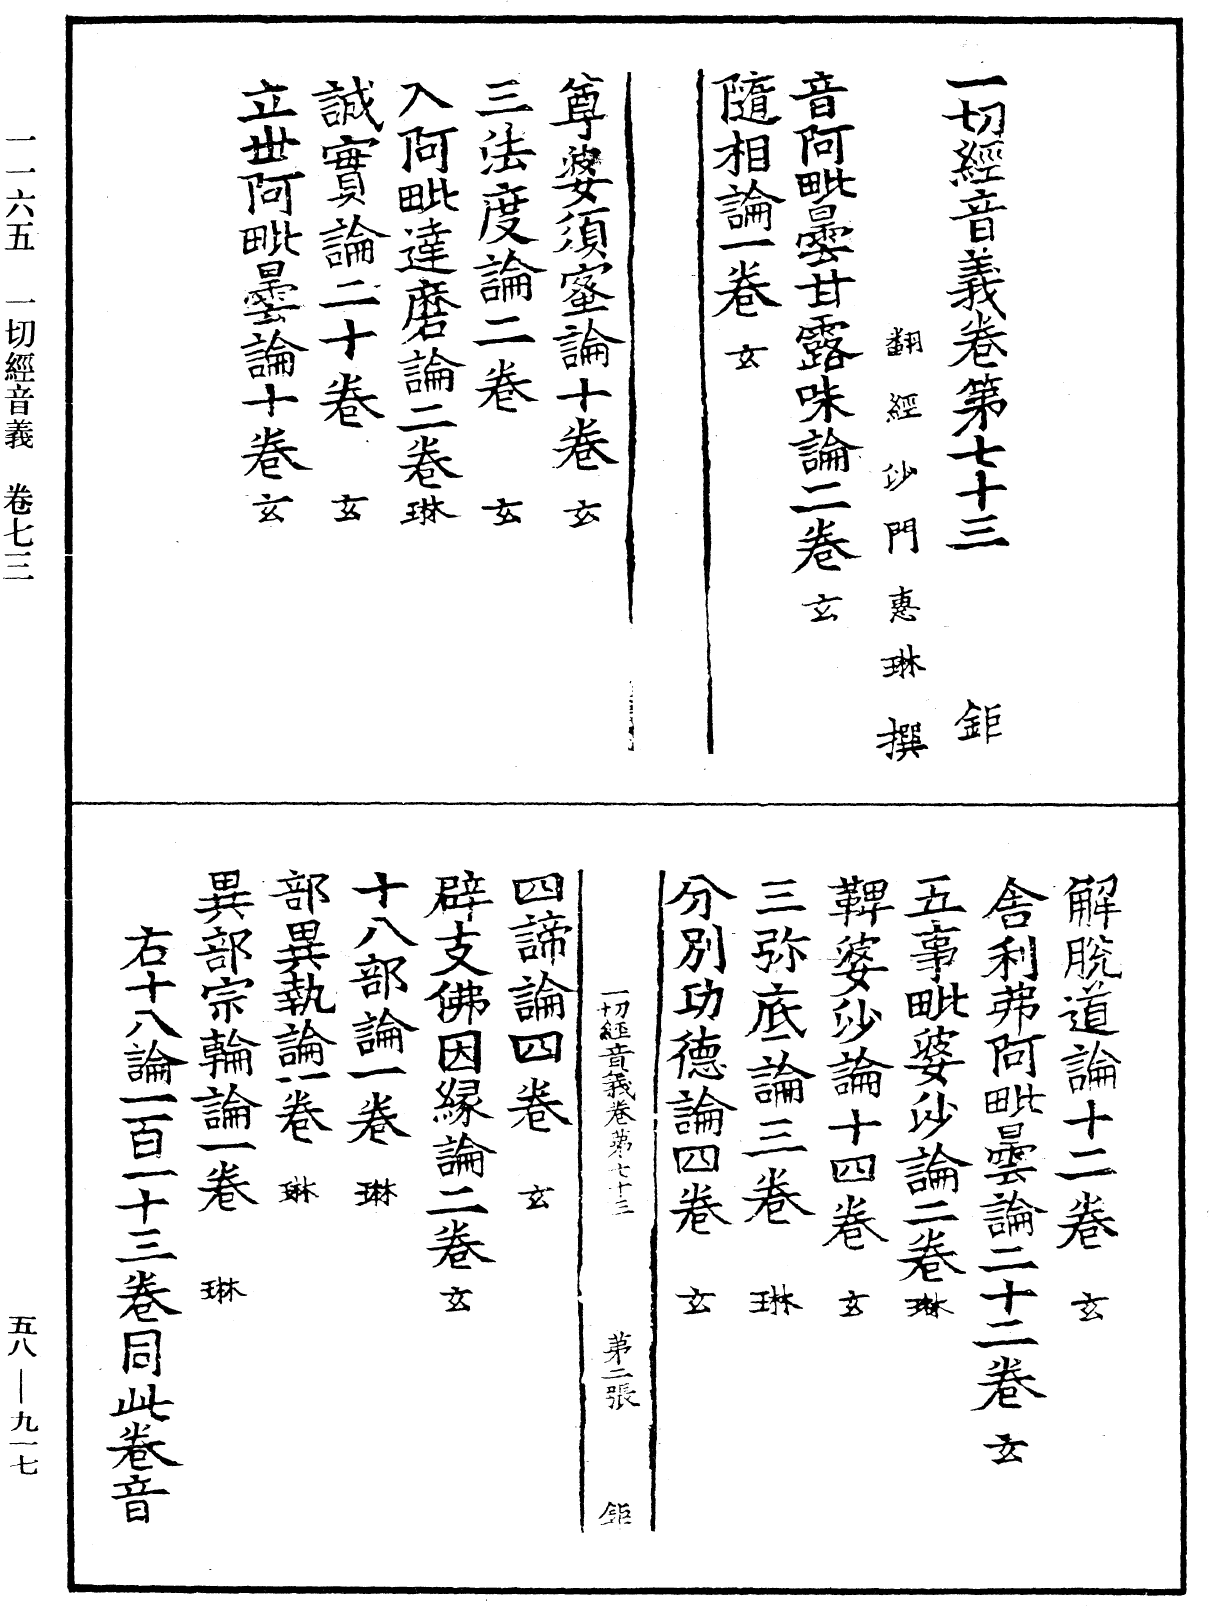 一切經音義卷第七十三　鉅
翻經沙門惠琳撰
音阿毗曇甘露味論二卷　玄
隨相論一卷　玄
尊婆須蜜論十卷　玄
三法度論二卷　玄
入阿毗達磨論二卷　琳
誠實論二十卷　玄
立世阿毗曇論十卷　玄
解脫道論十二卷　玄
舍利弗阿毗曇論二十二卷　玄
五事毗婆沙論二卷　琳
鞞婆沙論十四卷　玄
三弥底論三卷　琳
分別功德論四卷　玄
一切經音義卷第七十三　第二張　鉅
四諦論四卷　玄
辟支佛因緣論二卷　玄
十八部論一卷　琳
部異執論一卷　琳
異部宗輪論一卷　琳
右十八論一百一十三卷同此卷音
一一六五　一切經音義　卷七三
五八—九一七